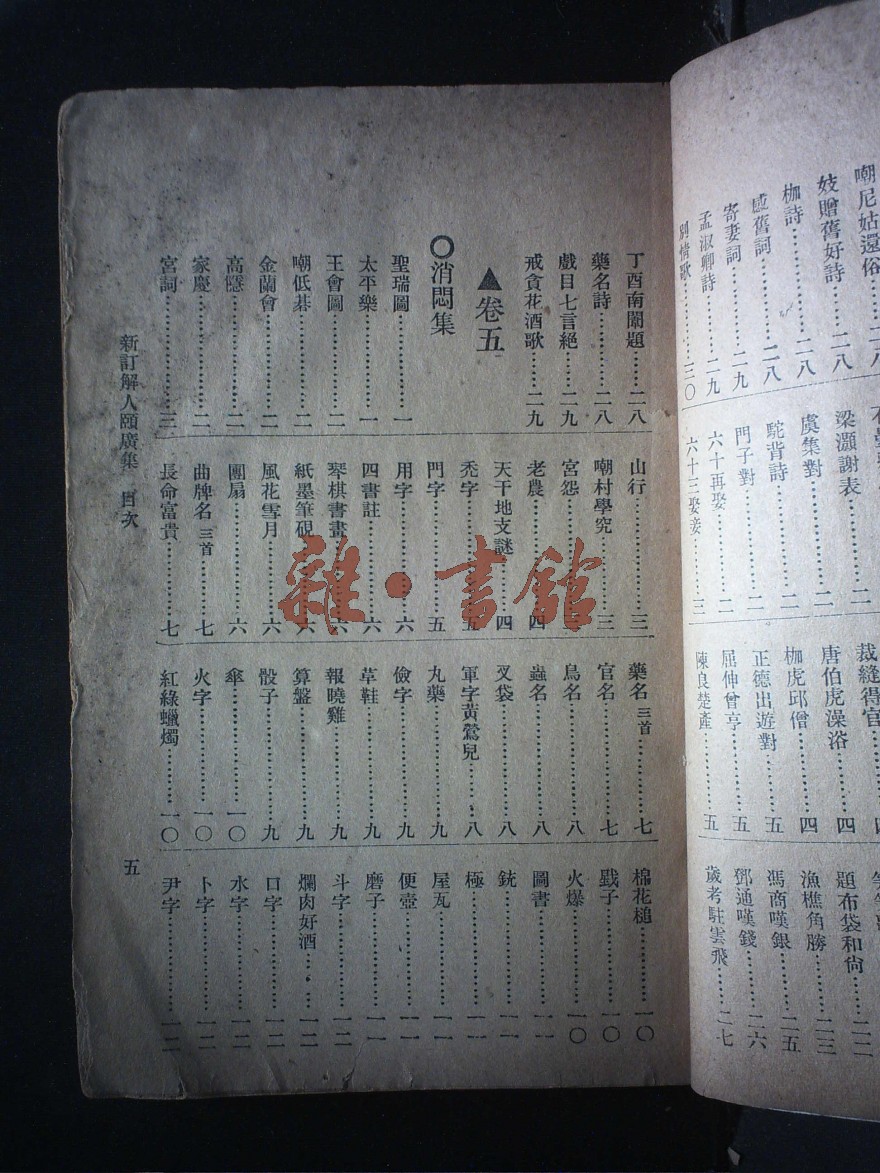 嘲尼姑還俗……二八
妓贈舊好詩……二八
枷詩……二八
感舊詞……二八
寄妻詞……二九
孟淑卿詩……二九
別情歌……三〇
梁灝謝表……二
虞集對……二
駝背詩……二
門子對……二
六十再娶……二
六十三娶妾……三
裁縫得官……四
唐伯虎澡浴……四
枷虎邱僧……四
正德出遊對……五
屈伸曾亨……五
陳良楚產……五
題布袋和尙……二二
漁樵角勝……二三
馮商嘆銀……二五
鄧通嘆錢……二六
歲考駐雲飛……二七
丁酉南闈題……二八
藥名詩……二八
戲目七言絕……二九
戒貪花酒歌……二九
▲卷五
〇消悶集
聖瑞圖……一
太平樂……一
王會圖……二
嘲低棊……二
金蘭會……二
高隱……二
家慶……二
宮詞……三
山行……三
嘲村學究……三
宮怨……四
老農……四
天干地支謎……四
禿字……五
門字……五
用字……六
四書註……六
琴棋書畫……六
紙墨筆硯……六
風花雪月……六
團扇……六
曲牌名 三首……七
長命富貴……七
藥名 三首……七
官名……七
鳥名……八
蟲名……八
叉袋……八
軍字黃鶯兒……八
丸藥……九
儉字……九
草鞋……九
報曉雞……九
算盤……九
骰子……九
傘……一〇
火字……一〇
紅綠蠟燭……一〇
棉花槌……一〇
戥子……一〇
火爆……一〇
圖書……一一
銃……一一
極……一一
屋瓦……一一
便壺……一一
磨子……一一
斗字……一二
爛肉好酒……一二
口字……一二
水字……一二
卜字……一二
尹字……一二
新訂解人頤廣集 目次
五
雜·書館